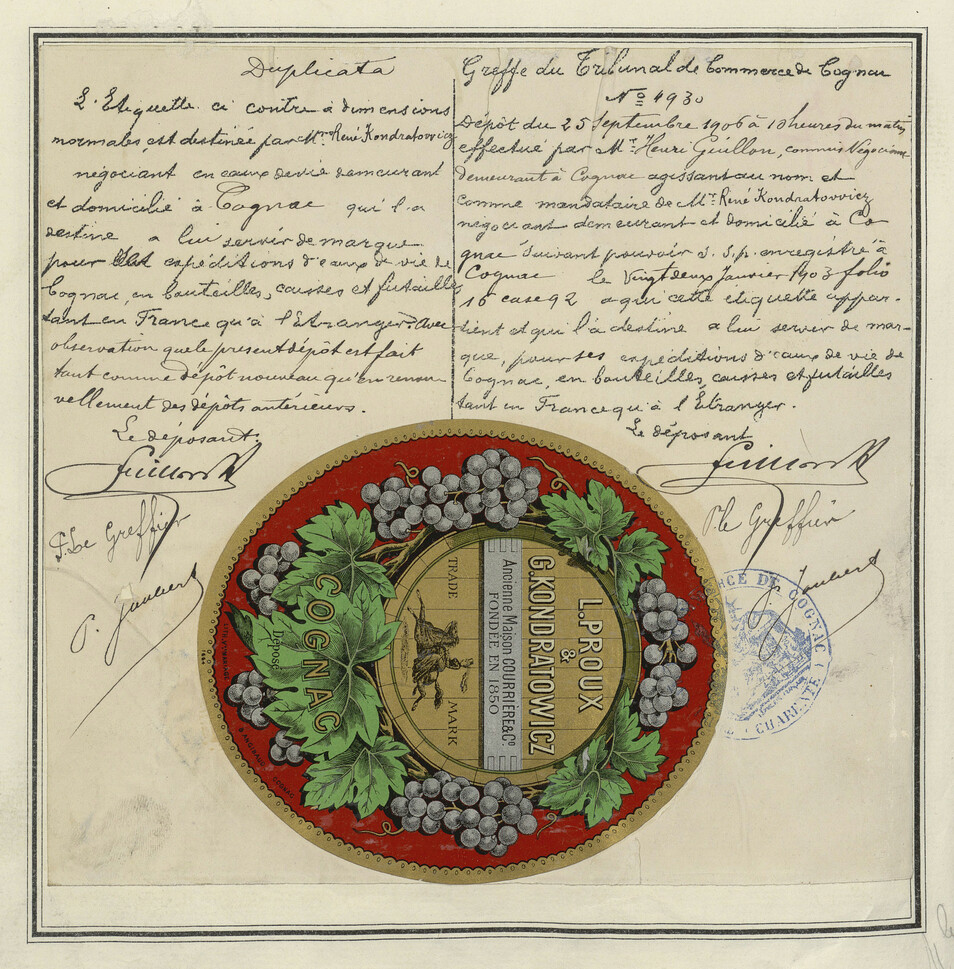 Duplicata
L'Etiquette ci contre à dimensions
normales, est destinée par Mr. René Kondratovvicz
négociant en eaux de vie demeurant
et domicilié à Cognac qui l'a
destine a lui servir de marque
pour ses expéditions d'eaux de vie de
Cognac, en bouteilles, caisses et futailles
tant en France qu'à l'Etranger. Avec
observation que le present dépôt est fait
tant comme dépôt nouveau qu'en renou-
vellement des dépôts antérieurs.
Le déposant.
Guillon
P. Le Greffier
P. Joubert
Greffe du Tribunal de Commerce de Cognac
No 4930
Dépôt du 25 Septembre 1906 à 10 heures du matin
effectué par Mr. Henri Guillon, commis Négociant
demeurant à Cognac agissant au nom et
comme mandataire de Mr. René Kondratovvicz
négociant demeurant et domicilié à Co
gnac suivant pouvoir S.S.p. enregistré à
Cognac le Vingt deux Janvier 1903 folio
16 case 92 a qui cette étiquette appar-
tient et qui l'a destine a lui servir de mar-
que, pour ses expéditions d'eaux de vie de
Cognac, en bouteilles, caisses et futailles
tant en France qu'à l'Étranger.
Le déposant
Guillon
P. le Greffier
Joubert
L. PROUX
&
G. KONDRATOWICZ
Ancienne Maison COURRIÈRE & Co
FONDÉE EN 1850
TRADE MARK
COGNAC
Déposé
COGNAC
DE COGNAC
CHARENTE